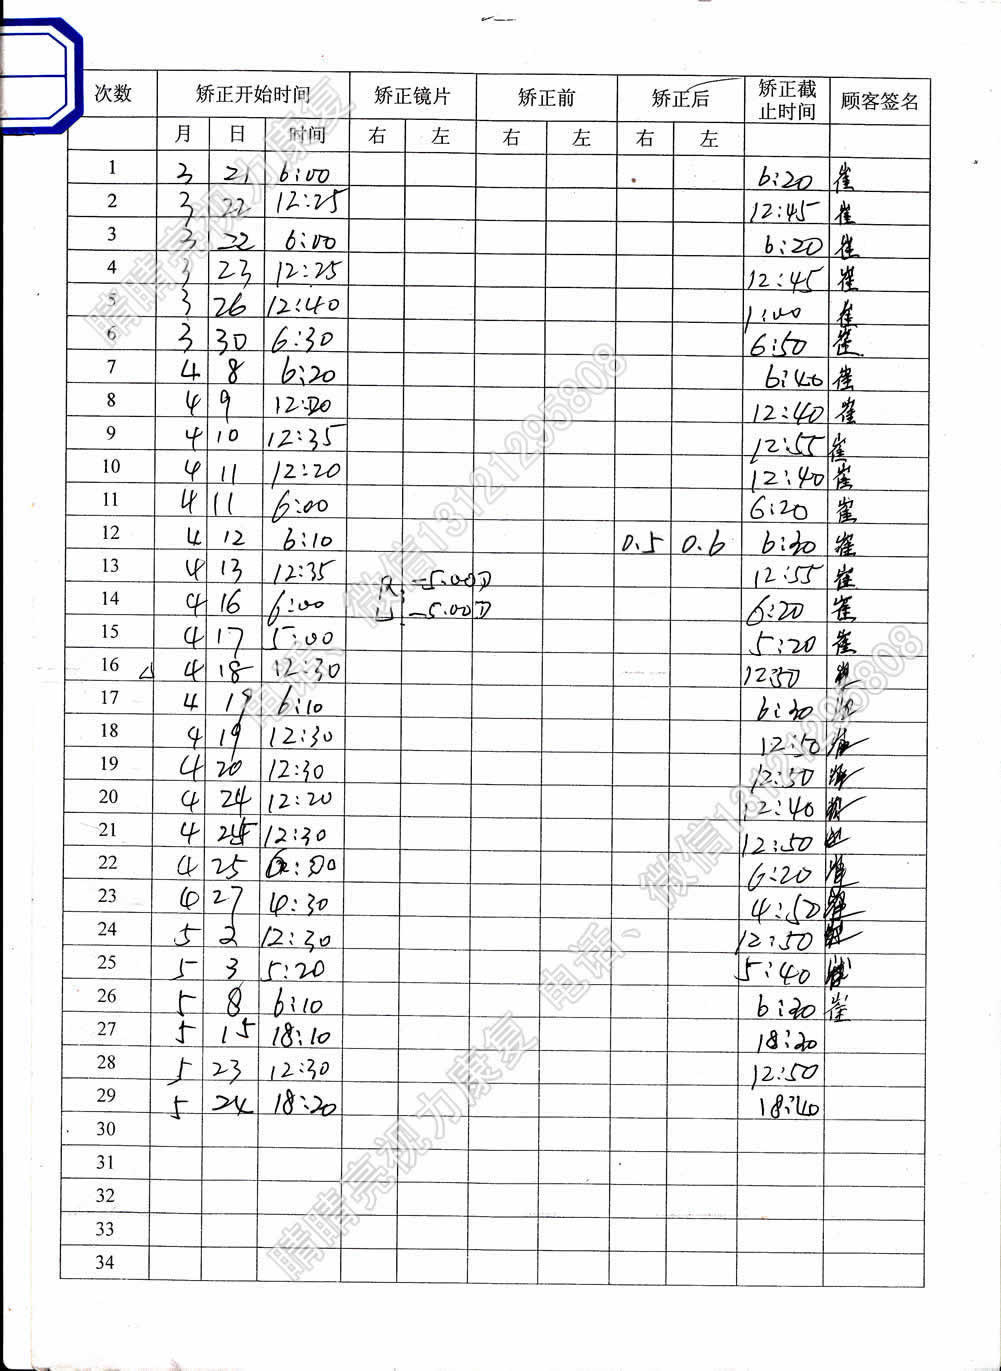 次数 矫正开始时间 矫正镜片 矫正前 矫正后 矫正截止时间 顾客签名
月 日 时间 右 左 右 左 右 左
1 3 21 6:00 6:20 崔
2 3 22 12:25 12:45 崔
3 3 22 6:00 6:20 崔
4 3 23 12:25 12:45 崔
5 3 26 12:40 1:00 崔
6 3 30 6:30 6:50 崔
7 4 8 6:20 6:40 崔
8 4 9 12:20 12:40 崔
9 4 10 12:35 12:55 崔
10 4 11 12:20 12:40 崔
11 4 11 6:00 6:20 崔
12 4 12 6:10 0.5 0.6 6:30 崔
13 4 13 12:35 R: -5.00D 12:55 崔
14 4 16 6:00 L: -5.00D 6:20 崔
15 4 17 5:00 5:20 崔
16 △ 4 18 12:30 12:50
17 4 19 6:10 6:30
18 4 19 12:30 12:50
19 4 20 12:30 12:50
20 4 24 12:20 12:40
21 4 25 12:30 12:50
22 4 25 6:00 6:20
23 4 27 4:30 4:50
24 5 2 12:30 12:50
25 5 3 5:20 5:40
26 5 8 6:10 6:30 崔
27 5 15 18:10 18:30
28 5 23 12:30 12:50
29 5 24 18:20 18:40
30
31
32
33
34
晴晴亮视力康复 电话、微信13121295808
晴晴亮视力康复 电话、微信13121295808